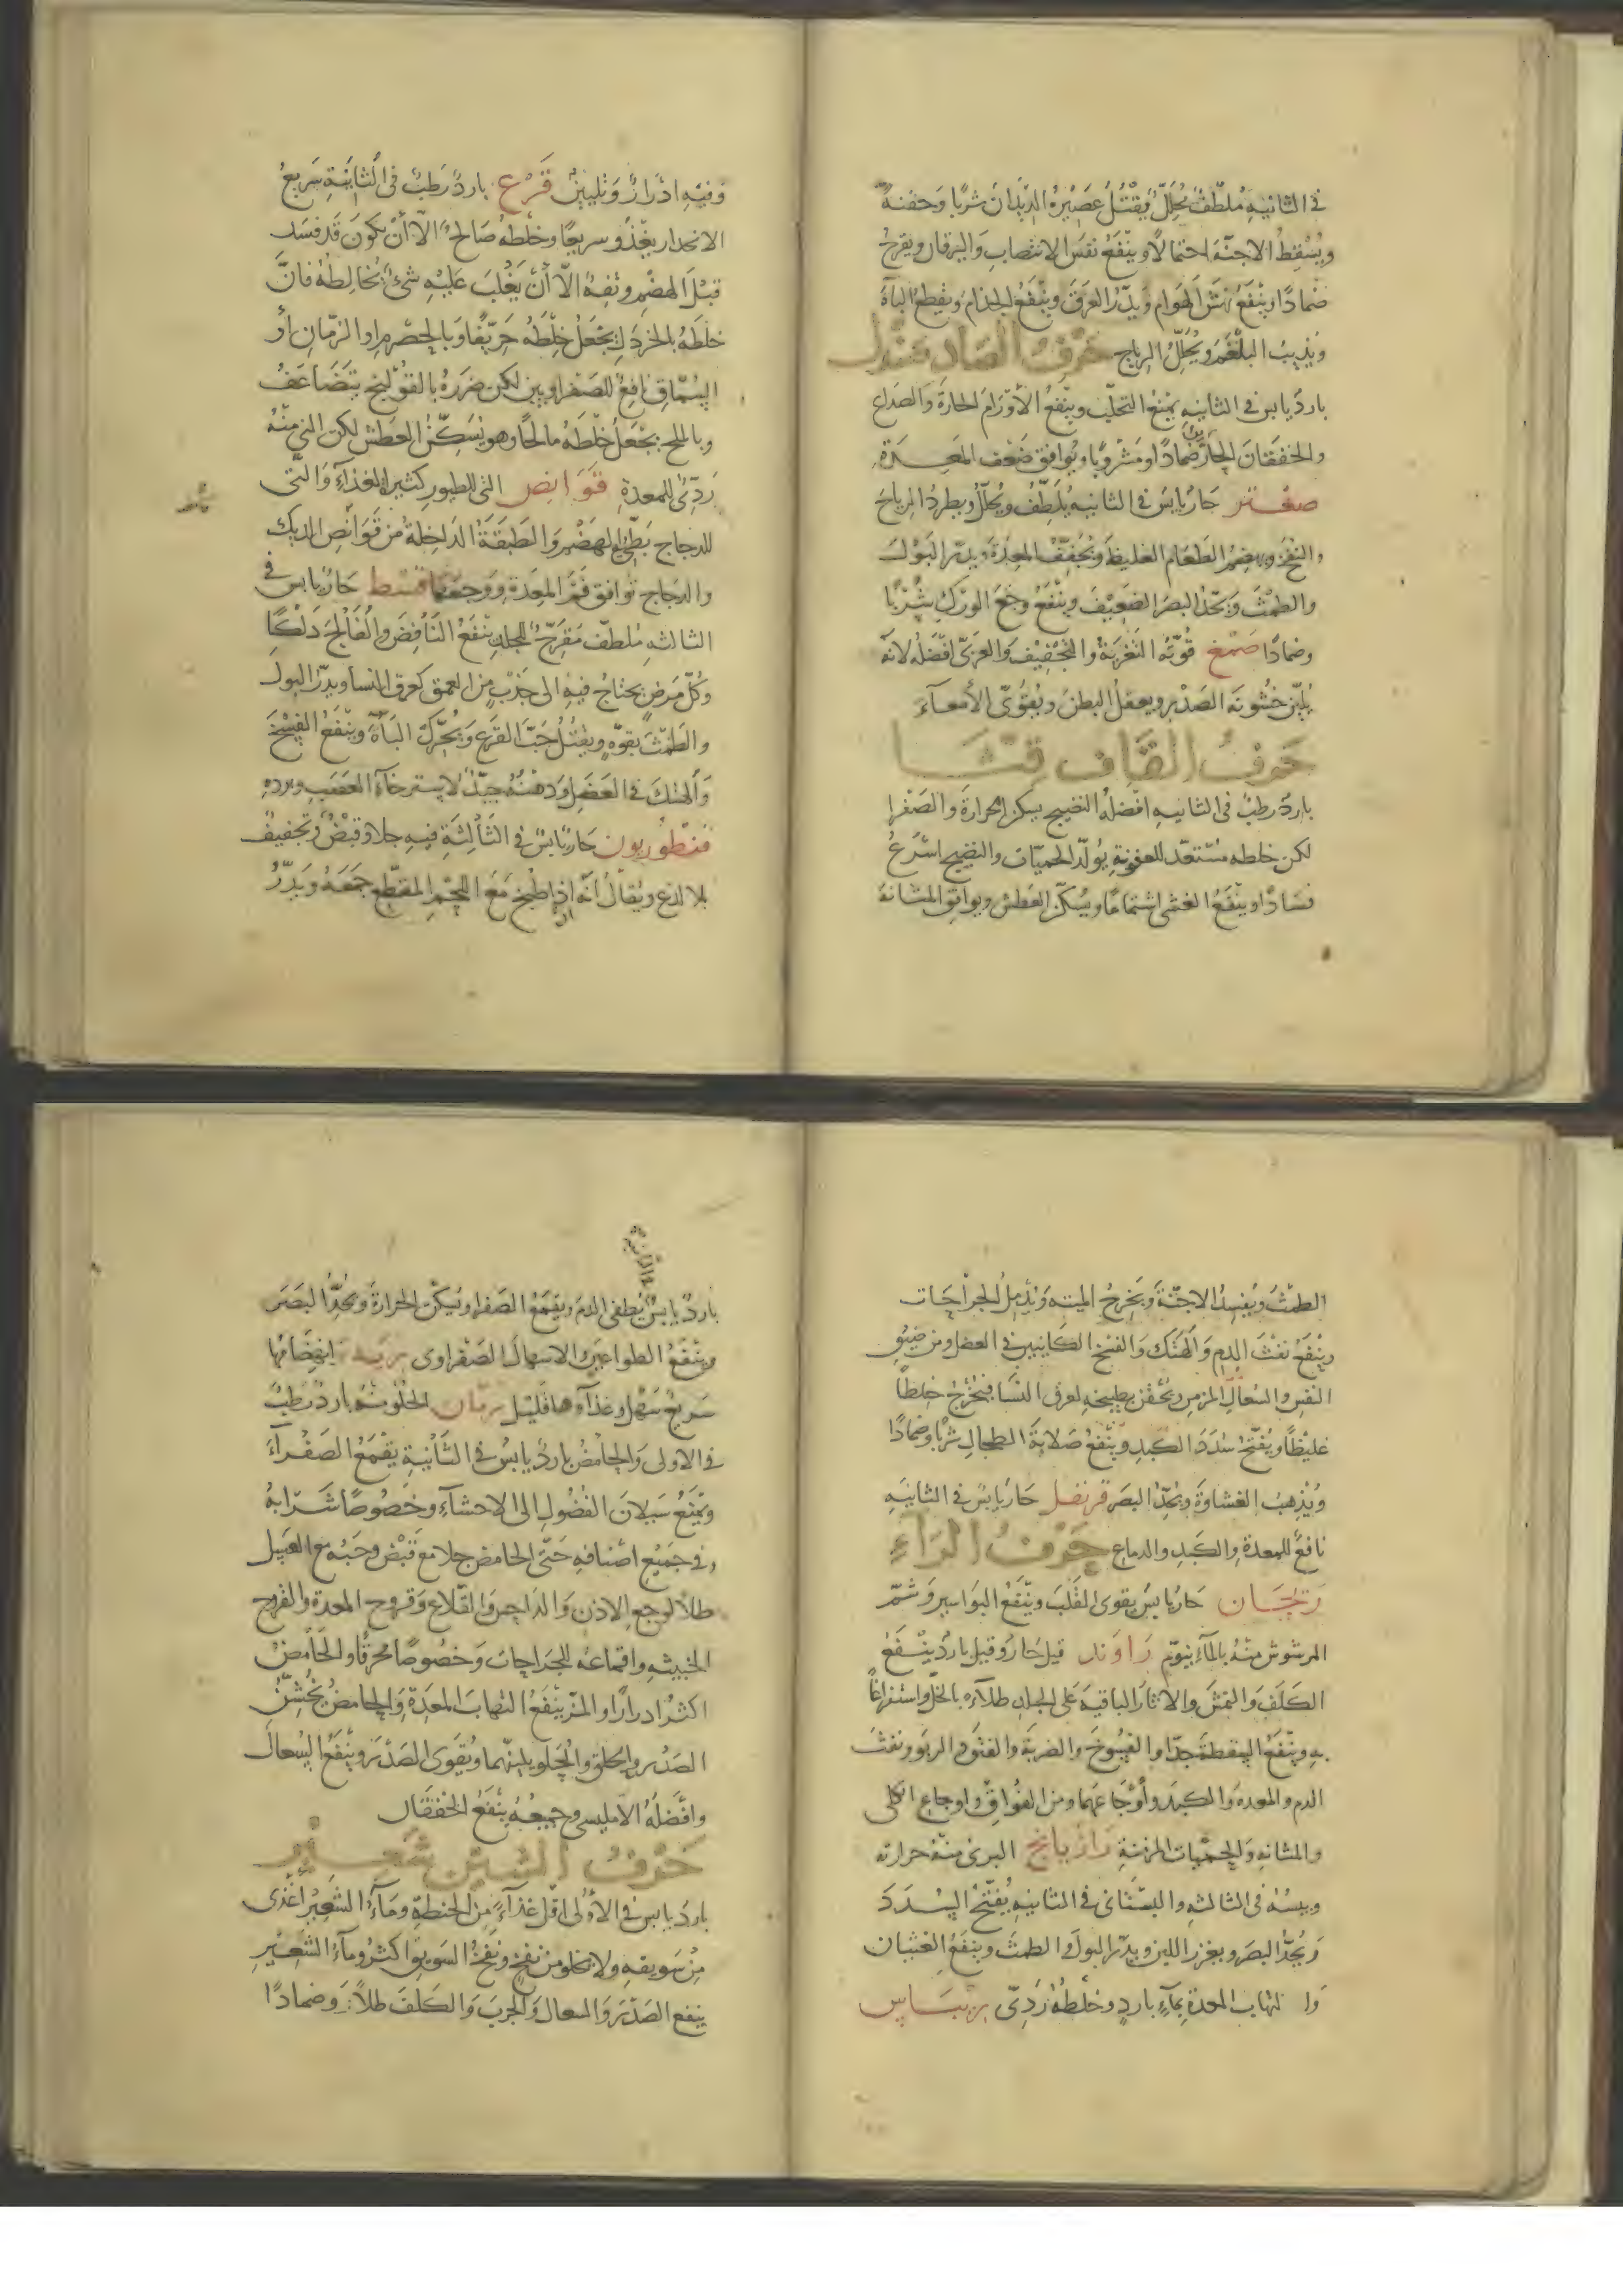 في الثانيه مُلطّفٌ مُحلّلٌ يَقْتُلُ عَصيرُهُ الدّيدَانَ شربًا وَحقنةً
ويُسْقِطُ الاجنّةَ احتمالًا وينْفَعُ نفَسَ الانتصابِ وَاليرقان ويقرحُ
ضمادًا وينْفَعُ نهشَ الهَوام وَيدِرّ العَرَقَ وينْفَعُ الجذامَ ويقطع الباهَ
ويُذيبُ البلْغَمَ ويُحلّلُ الرياح حَرْفُ الصَّاد صَنْدل
باردٌ يابس في الثانيه يمنعُ التحلّب وينْفَعُ الأوْرَامَ الحارةَ وَالصداع
والخفقانَ الحارّ ضمادًا ومَشْروبًا ويُوافق ضَعْف المَعِدَةِ
صعْتر حَارٌّ يابسٌ في الثانيه يُلَطّفُ ويُحلّلُ ويطردُ الرياحَ
والنفخَ ويهضمُ الطَعَام الغليظَ ويُجفّفُ المعِدَةَ ويدرّ البَوْلَ
والطمْثَ ويَحدّ البصرَ الضعيْفَ وينْفَعُ وجَعَ الورْكِ شُرْبًا
وضمادًا صَمْغ قُوّتُه التغريَةُ والتجْفيْف وَالعربيّ افْضَلُه لانّه
يُليّن خشونَة الصَدْرِ ويعقلُ البطنَ ويُقَوّي الأمعآءَ
حَرْفُ القَاف قثَّا
باردٌ رطبٌ في الثانيه افْضلُه النضيج يسكن الحرارةَ والصَفْرا
لكن خلطه مستعدّ للعفونةِ يُولّدُ الحميّات والنضيج اسْرَعُ
فسَادًا وينْفَعُ الغشى اشتمامًا ويُسكّن العَطش ويوافق المثانةَ
وَفيْهِ ادْرارٌ وَتليينٌ قَرْع باردٌ رَطبٌ في الثَانيَةِ سَريعُ
الانحدار يغْذُو سريعًا وخلْطهُ صَالحٌ الّا أنْ يكونَ قَد فسَد
قبْلَ الهضْمِ وتفهٌ الّا أنْ يَغْلبَ عَليْهِ شئٌ يُخَالِطهُ فانَّ
خلَطَهُ بالخردَلِ يجْعَلُ خِلْطَهُ حَرّيفًا وَبالحصْرِمِ او الرّمّانِ أوِ
السُمَّاقِ نافعٌ للصَفراويين لكن ضررهُ بالقوْلنج يتَضَاعَفُ
وبالملح يجْعَلُ خلْطَهُ مالحًا وهو يُسَكّنُ العَطش لكن النيّ منْهُ
رَدئٌ للمعدة قوَانِص التي للطيور كثيرة الغذآءِ وَالتي
للدجاج بَطيئ الهَضْم وَالطَبَقَةُ الدَاخِلةُ من قَوَانْصِ الديك
والدجاج تُوافق فَمَ المَعِدَةِ ووَجعهَا قسْط حَارٌ يابس في
الثالثهِ ملطفٌ مقرّحٌ للجلدِ ينفعُ النَافِضَ والفَالجَ دَلْكًا
وكُلَّ مَرَضٍ يحتاجُ فيهِ الى جَذْبٍ من العمق كعرق النسا ويدرّ البول
والطَمْثَ بقوّهٍ ويقتُلُ حَبَّ القَرعِ وَيُحَرّك البَآهَ وينْفَعُ الفسْخَ
وَالهتك في العَضَلِ وَدهْنُهُ جيّدٌ لاسترخآءِ العَصَبِ وبردهِ
قنطوريون حَارٌ يابسٌ في الثَالثةِ فيهِ جلاءٌ وقبْضٌ وتجفيفٌ
بلا لذع ويقالُ انّه اذا طُبخَ مَعَ اللحْمِ المقطّع جمَعَهُ وَيُدرُّ
الطمْثَ ويفسِدُ الاجنّةَ وَيخرجُ الميتهَ وَيُدْمِلُ الجراحَات
وينْفَعُ نفْثَ الدمِ وَالهتكَ وَالفسْخَ الكَائنيْن في العضل ومن ضيقِ
النفَسِ والسُعالِ المزمنِ ويُحْقنُ بطبيخهِ لعرق النَسَا فيُخْرجُ خلطًا
غليظًا ويُفتّحُ سُدَدَ الكَبِدِ وينْفعُ صَلابةَ الطحالِ شربًا وضمادًا
ويُذهبُ الغشاوَةَ ويُحدّ البصَر قرنفل حَارٌّ يابسٌ في الثانيَهِ
نافعٌ للمعدةِ والكَبدِ والدماغ حَرْفُ الرَّاءِ
رَيْحَان حَارٌ يابسٌ يقوى القَلْبَ وينْفَعُ البَواسيرَ وَشَمّ
المرشوشِ منْهُ بالمآءِ ينَوّم رَاوَند قيلَ حَارٌ وقيل باردٌ ينْفَعُ
الكلَفَ وَالنمَشَ والاثارَ الباقيَهَ عَلى الجلدِ طلآءً بالخلّ واستفراغًا
بهِ وينْفَعُ السقطةَ جدّا والفسُوخَ والضربةَ والفتوقَ والربوَ ونفثَ
الدم والمعدةَ والكبدَ وأوْجَاعهما ومن الفُوَاقِ واوجاعِ الكلى
والمثانهِ وَالحميّات المزمنةِ رَازيانج البرى منْهُ حرارته
ويبسُهُ في الثالثهِ والبسْتَانى في الثانيهِ يُفتّحُ السدَدَ
وَيُحدّ البصرَ ويغزر اللبن ويدرّ البولَ والطمثَ وينفعُ الغثيان
وَالتهابَ المعدةِ بمآءٍ باردٍ وخلطُهُ رَدِىّ ريْبَاس
باردٌ يابسٌ يُطفى الدمَ ويقمَعُ الصَفرا ويُسكّنُ الحرارةَ ويُحدُّ البَصَر
وينْفَعُ الطواعيْنَ والاسهالَ الصَفْراوى رئة انهضامُها
سَريعٌ سَهْلٌ وغذآؤهَا قليْل رمّان الحُلْو منْهُ باردٌ رَطبٌ
في الاولى وَالحامضُ باردٌ يابسٌ في الثَانيَةِ يَقْمَعُ الصَفْرآءَ
ويمنَعُ سَيَلانَ الفُضُولِ الى الاحشآءِ وخصُوصًا شَرَابهُ
وفي جَميْع اصْنافهِ حَتّى الحامض جلاءٌ مع قَبْضٍ وحَبُّه مع العسَل
طلاءً لوجعِ الاذن وَالدَاحِس وَالقُلاع وَقرُوحِ المعدةِ والقُروحِ
الخبيثهِ واقماعُه للجراحاتَ وَخصُوصًا محرقًا والحَامضُ
اكثرُ ادرارًا والمزّ ينْفَعُ التهابَ المعَدةِ وَالحامضُ يُخشّنُ
الصَدْرَ والحلْقَ والحُلْو يليّنهما ويُقَوى الصَدْرَ وينْفَعُ السُعالَ
وافْضلُهُ الامليسى وجميعُهُ ينْفَعُ الخفقَان
حَرْفُ الشين شَعِيْر
باردٌ يابس في الأُوْلى اقلّ غذآءً مِن الحنطةِ ومآءُ الشَعِيْرِ اغْذى
مِنْ سَويقهِ ولا يخلو من نفْخٍ ونَفْخُ السَويق اكثرُ ومآءُ الشَعيْرِ
ينفع الصَدْرَ وَالسعالَ وَالجربَ وَالكلَفَ طلاءً وَضمادًا